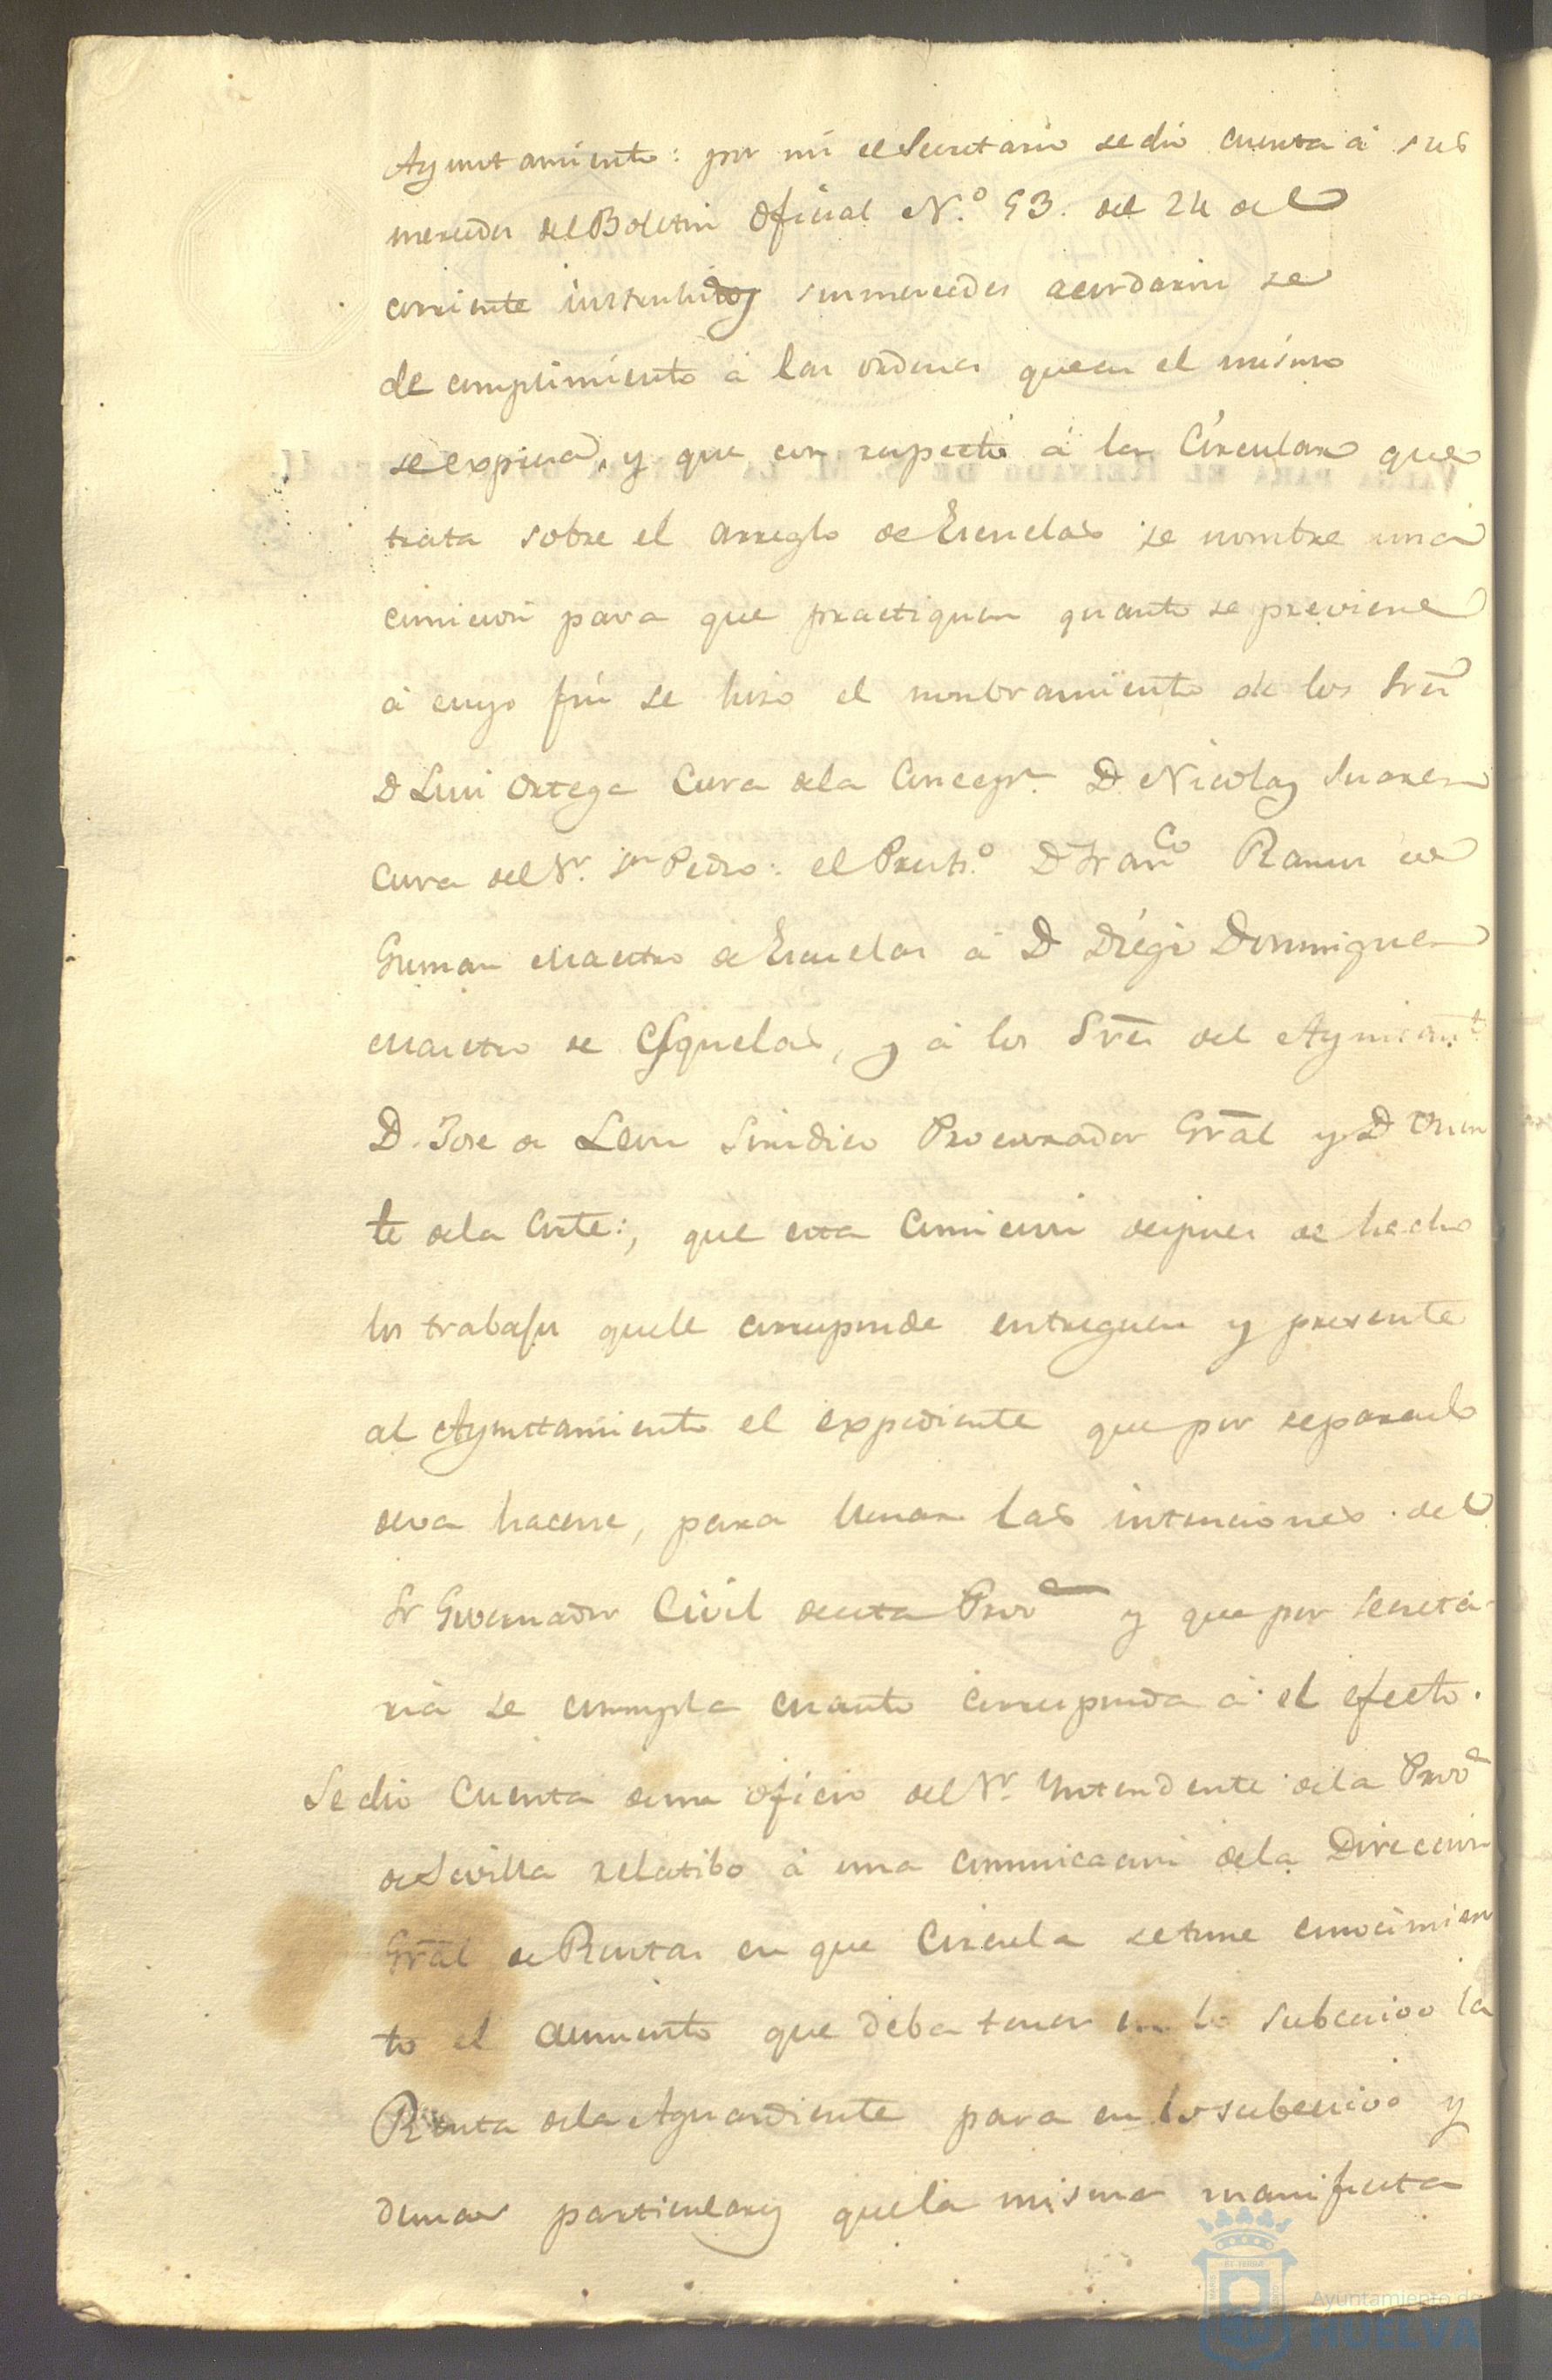 Ayuntamiento: por mi el Secretario se dio cuenta á sus
mercedes del Boletin Oficial N.º 93. del 24 del
corriente instruhidos sus mercedes acordaron se
de cumplimiento á las ordenes que en el mismo
se expresa, y que con respecto á la Circular que
trata sobre el arreglo de Escuelas se nombre una
comicion para que practiquen quanto se previene
á cuyo fin se hiso el nombramiento de los Sres
D Luis Ortega Cura dela Concepn. D. Nicolas Suares
Cura del Sr. Sn Pedro: el Presb.º D Franco Ramos de
Gusman Maestro de Escuelas á D Diego Domingues
Maestro de Esquelas, y á los Sres del Ayuntamt.
D. Jose de Leon Sindico Procurador Gral y D Vicen
te dela Corte:, que esta Comicion despues de hecho
los trabajos quele corresponde entreguen y presente
al Ayuntamiento el expediente que por separado
deva hacerse, para llenar las intenciones del
Sr Governador Civil de esta Prova y que por secreta-
ria se cumpla cuanto corresponda á el efecto.
Se dio Cuenta de un oficio del Sr. Yntendente dela Prova
de Sevilla relatibo á una comunicacion dela Direccion
Gral de Rentas en que Circula se tome conocimien
to el aumento que deba tener en lo subcecivo la
Renta dela Aguardiente para en lo subcecivo y
demas particulares quela misma manifiesta
VALGA PARA EL REINADO DE S. M. LA
Ayuntamiento de
HUELVA